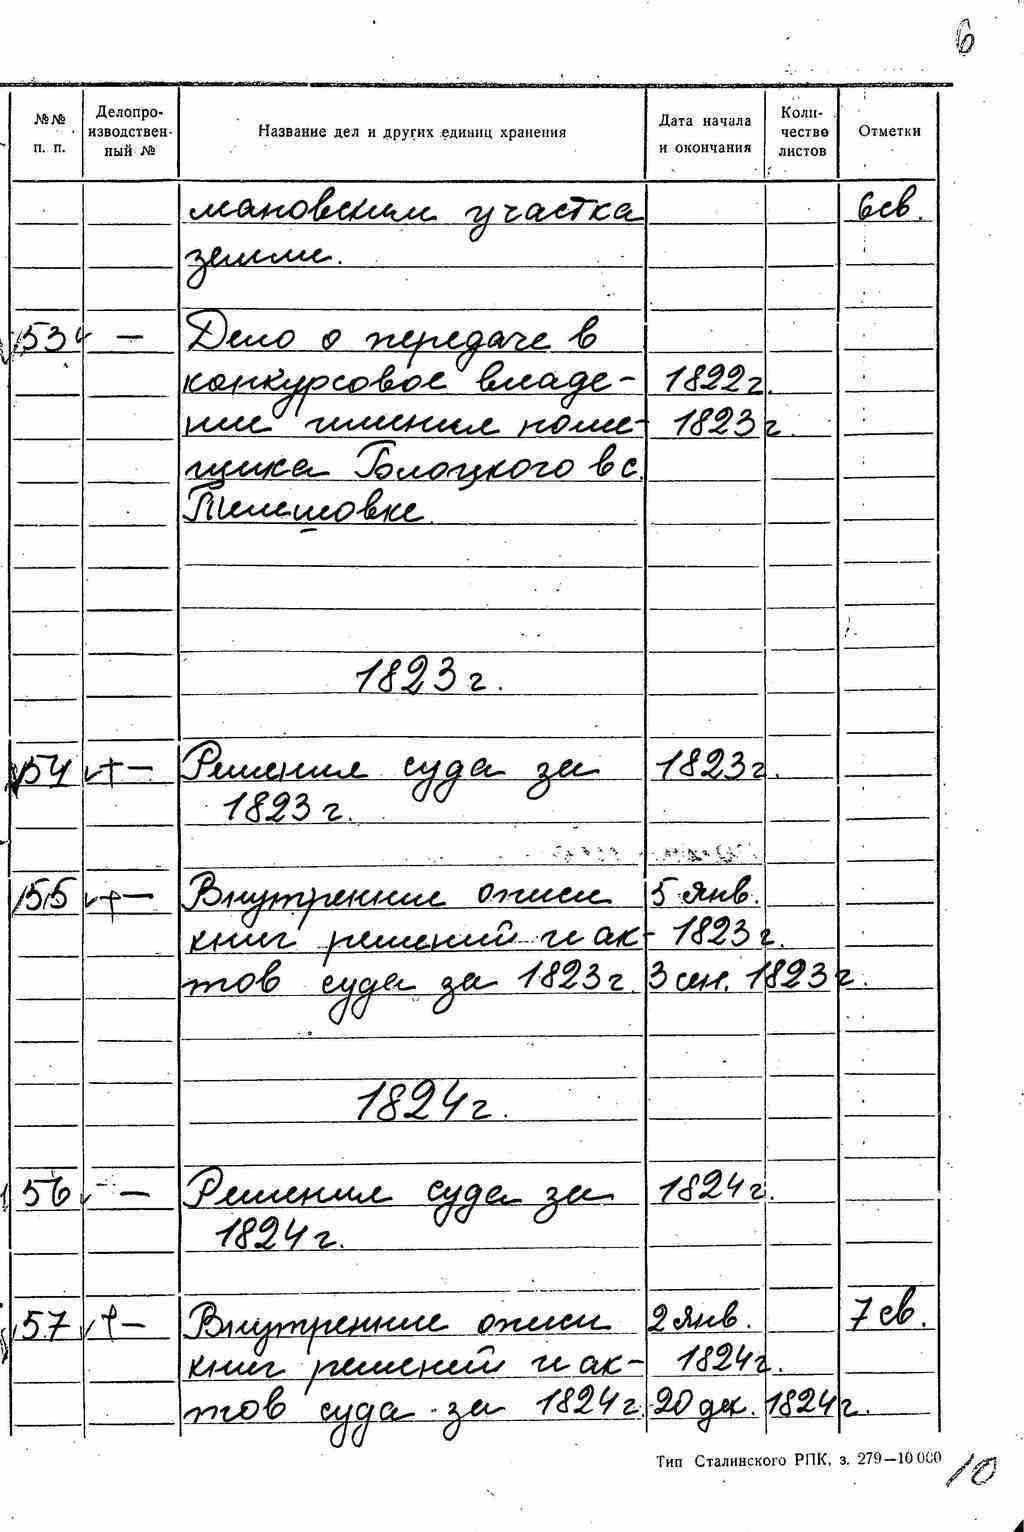 6
№№ п. п.
Делопро-
изводствен-
ный №
Название дел и других единиц хранения
Дата начала
и окончания
Коли-
чество
листов
Отметки
мановским участка 6 св.
земли.
53 — Дело о передаче в
конкурсовое владе- 1822 г.
ние имения поме- 1823 г.
щика Голоцкого в с.
Телешовке.
1823 г.
54 + — Решения суда за 1823 г.
1823 г.
55 + — Внутренние описи 5 янв.
книг решений и ак- 1823 г.
тов суда за 1823 г. 3 сен. 1823 г.
1824 г.
56 — Решения суда за 1824 г.
1824 г.
57 + — Внутренние описи 2 янв. 7 св.
книг решений и ак- 1824 г.
тов суда за 1824 г. 20 дек. 1824 г.
Тип Сталинского РПК, з. 279—10 000
10